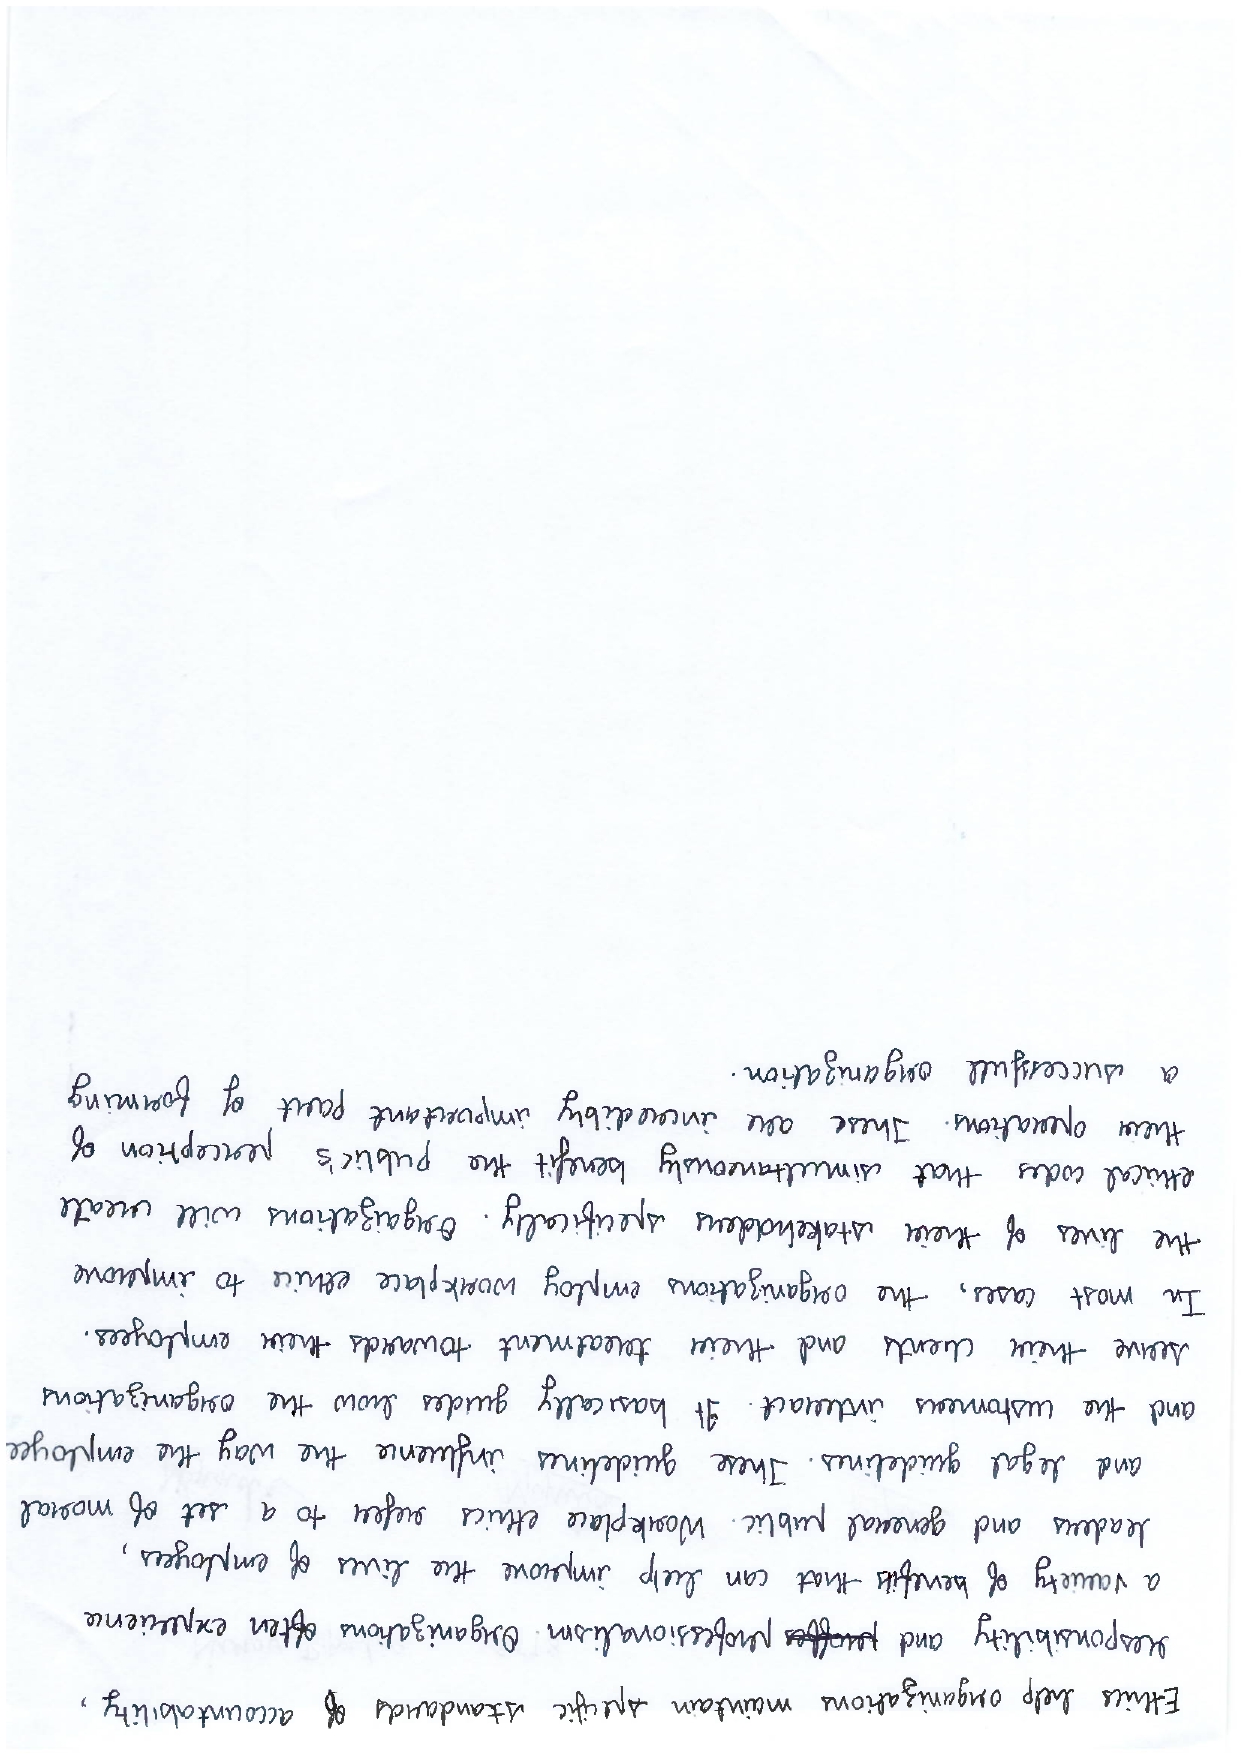 Ethics help organizations maintain specific standards of accountability,
responsibility and proffes professionalism. Organizations often experience
a variety of benefits that can help improve the lives of employees,
leaders and general public. Workplace ethics refer to a set of moral
and legal guidelines. These guidelines influence the way the employee
and the customers interact. It basically guides how the organizations
serve their clients and their treatment towards their employees.
In most cases, the organizations employ workplace ethics to improve
the lives of their stakeholders specifically. Orgaizations will create
ethical codes that simultaneously benefit the public's perception of
their operations. These are incredibly important part of forming
a successfull organization.